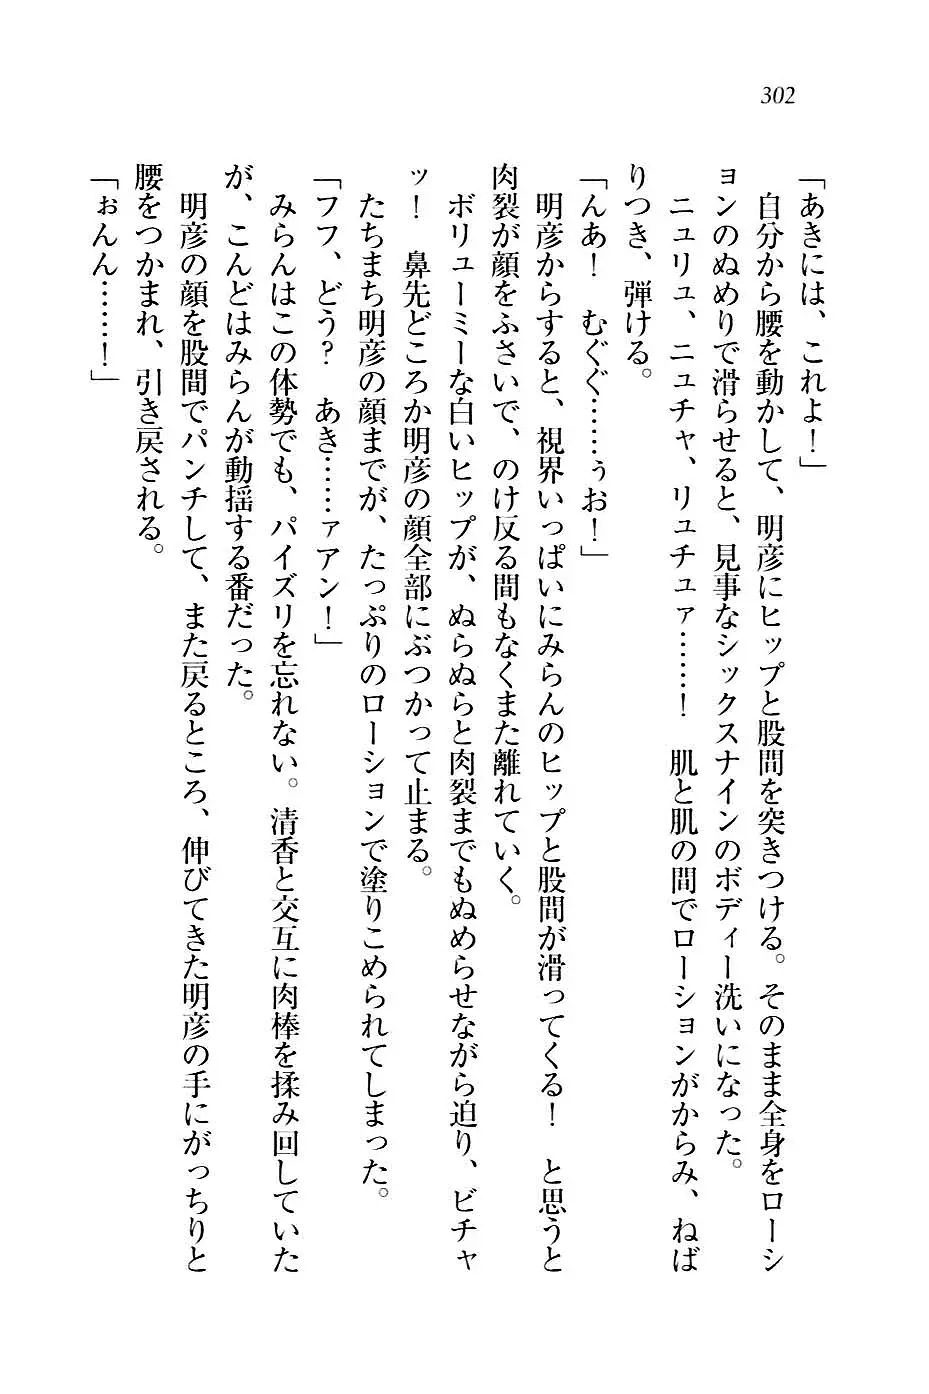 302
「あきには、これよ！」
　自分から腰を動かして、明彦にヒップと股間を突きつける。そのまま全身をローシ
ョンのぬめりで滑らせると、見事なシックスナインのボディー洗いになった。
　ニュリュ、ニュチャ、リュチュァ……！　肌と肌の間でローションがからみ、ねば
りつき、弾ける。
「んあ！　むぐぐ……ぅお！」
　明彦からすると、視界いっぱいにみらんのヒップと股間が滑ってくる！　と思うと
肉裂が顔をふさいで、のけ反る間もなくまた離れていく。
　ボリューミーな白いヒップが、ぬらぬらと肉裂までもぬめらせながら迫り、ビチャ
ッ！　鼻先どころか明彦の顔全部にぶつかって止まる。
　たちまち明彦の顔までが、たっぷりのローションで塗りこめられてしまった。
「フフ、どう？　あき……ァアン！」
　みらんはこの体勢でも、パイズリを忘れない。清香と交互に肉棒を揉み回していた
が、こんどはみらんが動揺する番だった。
　明彦の顔を股間でパンチして、また戻るところ、伸びてきた明彦の手にがっちりと
腰をつかまれ、引き戻される。
「ぉんん……！」